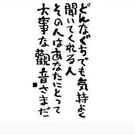 どんなぐちでも気持よく
聞いてくれる人
その人はあなたにとって
大事な観音さまだ